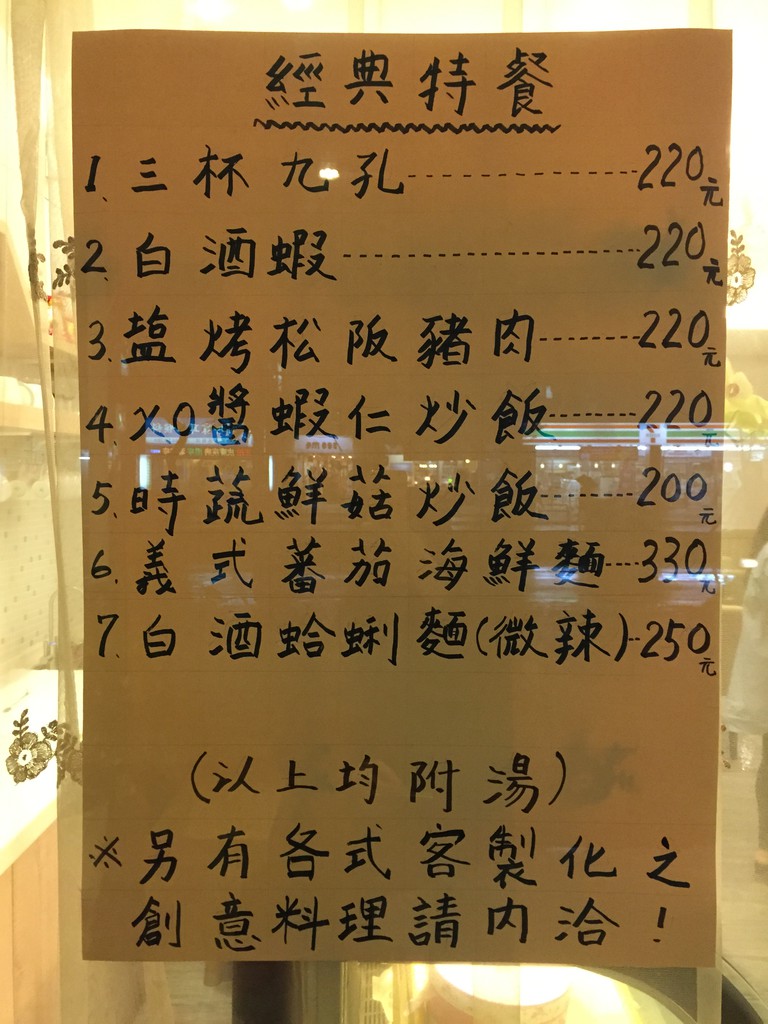 經典特餐
1、三杯九孔----------220元
2、白酒蝦----------220元
3、塩烤松阪豬肉------220元
4、XO醬蝦仁炒飯-----220元
5、時蔬鮮菇炒飯-----200元
6、義式蕃茄海鮮麵---330元
7、白酒蛤蜊麵(微辣)--250元
(以上均附湯)
※另有各式客製化之
創意料理請內洽!